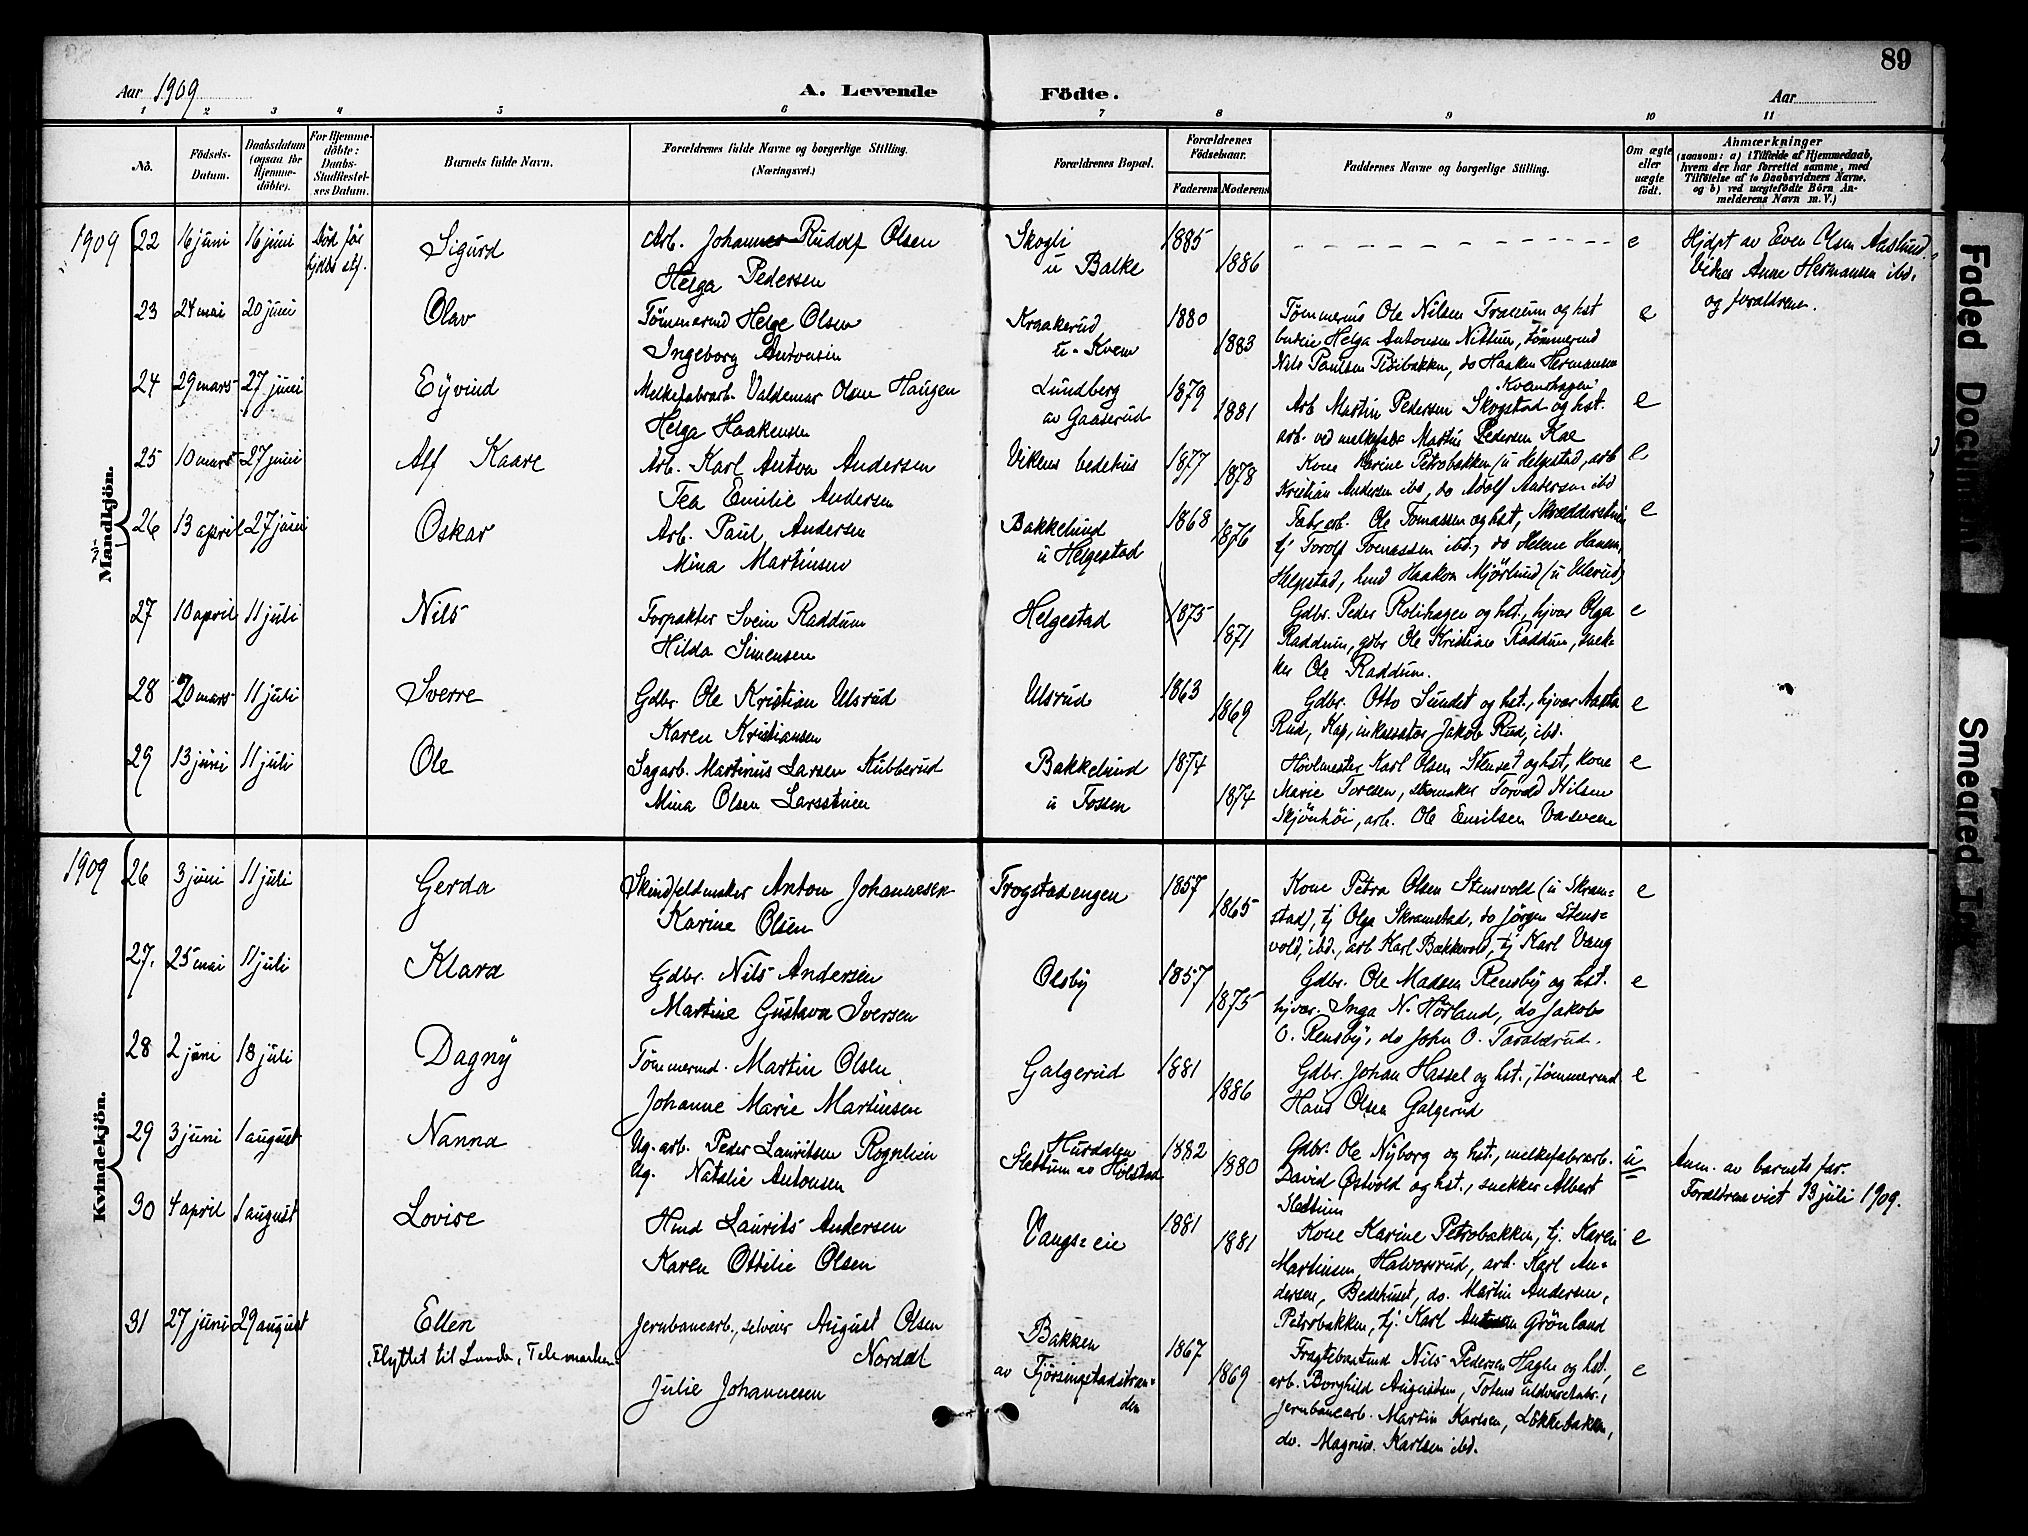 89
Aar 1909
A. Levende
Födte.
Aar
1 2 3 4 5 6 7 8 9 10 11
Nö.
Födsels-
Datum.
Daabsdatum
(ogsaa for
Hjemme-
döbte).
For Hjemme-
döbte:
Daabs-
Stadfæstel-
ses Datum.
Barnets fulde Navn.
Forældrenes fulde Navne og borgerlige Stilling.
(Næringsvei.)
Forældrenes Bopæl.
Forældrenes
Födselsaar.
Faderens
Moderens
Faddernes Navne og borgerlige Stilling.
Om ægte
eller
uægte
födt.
Anmærkninger
(saasom: a) i Tilfælde af Hjemmedaab,
hvem der har forrettet samme, med
Tilföielse af to Daabsvidners Navne,
og b) ved uægtefödte Börn An-
melderens Navn m. V.)
Mandkjön.
1909 22 16 juni 16 juni Död før
hjdbs stf.
Sigurd
Arb. Johannes Rudolf Olsen
Helga Pedersen
Skogli
u Balke
1885
1886
e
Hjdpt av Even Olsen Aaslund.
Vidner Anne Hermansen ibd.
og forældrene.
23 24 mai 20 juni
Olav
Tømmermd Helge Olsen
Ingeborg Antonsen
Kraakerud
u. Kvem
1880
1883
Tømmermd Ole Nilsen Fraeum og hst
budeie Helga Antonsen Nettum, tømmermd
Nils Paulsen bakken, do Haaken Hermansen
Kvemshagen
e
24 29 mars 27 juni
Eyvind
Melkefabrarb. Valdemar Olsen Haugen
Helga Haakensen
Lundberg
av Gaaserud
1879
1881
Arb Martin Pedersen Skogstad og hst.
arb. ved melkefabr Martin Pedersen Kae
e
25 10 mars 27 juni
Alf Kaare
Arb. Karl Anton Andersen
Tea Emilie Andersen
Vikens bedehus
1877
1878
Kone Karine Petrobakken (u Helgestad, arb
Kristian Andersen ibd, do Adolf Andersen ibd
e
26 13 april 27 juni
Oskar
Arb. Paul Andersen
Mina Martinsen
Bakkelund
u Helgestad
1868
1876
Fabr arb. Ole Tomassen og hst, Skrædder
tj Torolf Tomassen ibd, do Helene Hansen,
Helgestad, hmd Haakon Mjörlund (u Ullerud)
e
27 10 april 11 juli
Nils
Forpakter Svein Raddum
Hilda Simensen
Helgestad
1875
1871
Gdbr. Peder Rolihagen og hst., hjvær Olga
Raddum, gdbr Ole Kristian Raddum, snek-
ker Ole Raddum.
e
28 20 mars 11 juli
Sverre
Gdbr. Ole Kristian Ulsrud
Karen Kristiansen
Ulsrud
1863
1869
Gdbr. Otto Sundet og hst., hjvær Aasta
Rud, Kap, inkassator Jakob Rud, ibd.
e
29 13 juni 11 juli
Ole
Sagarb. Martinus Larsen Kubberud
Mina Olsen Larsstuen
Bakkelund
u Fossen
1874
1874
Hövlmester Karl Olsen Stenset og hst, kone
Marie Toresen, skomaker Torvald Nilsen
Skjönhöi, arb. Ole Emilsen
e
Kvindekjön.
1909 26 3 juni 11 juli
Gerda
Skindfeldmaker Anton Johannesen
Karine Olsen
Trogstadengen
1857
1865
Kone Petra Olsen Stensvold (u Skram-
stad), tj Olga Skramstad, do Jørgen Stens-
vold, ibd., arb Karl Bækkevold, tj Karl Vang
e
27. 25 mai 11 juli
Klara
Gdbr. Nils Andersen
Martine Gustava Iversen
Olsby
1857
1875
Gdbr. Ole Madsen Rensby og hst.
hjvær. Inga N. Hörland, do Jakob
O. Rensby, do John O. Taralsrud.
e
28 2 juni 18 juli
Dagny
Tömmermd. Martin Olsen
Johanne Marie Martinsen
Galgerud
1881
1886
Gdbr. Johan Hassel og hst., tömmermd
Hans Olsen Galgerud
e
29 3 juni 1 august
Nanna
Ug. arb. Peder Lauritsen Rognlien
Ug. Natalie Antonsen
Hurdalen
Slettum av Hölstad
1882
1880
Gdbr. Ole Nyborg og hst., melkefabrarb.
David Østvold og hst., snekker Albert
Slettum
u
Anm. av barnets far.
Forældrene viet 13 juli 1909.
30 4 april 1 august
Lovise
Hmd Laurits Andersen
Karen Ottilie Olsen
Vangs-eie
1881
1881
Kone Karine Petrobakken, tj. Karen
Martinsen Halvorsrud, arb. Karl An-
dersen, Bedehuset, do. Martin Andersen,
Petrobakken, tj. Karl Grönland
e
31 27 juni 29 august
Ellen
Flyttet til Lunde, Telemarken
Jernbanearb., selveier August Olsen
Nordal
Julie Johannesen
Bakken
av Fjörsingstadstran-
den
1867
1869
Fragtebaatmd Nils Pedersen Hagen og hst,
arb. Borghild Augustsen, Totens uldvarefabr.,
jernbanearb. Martin Karlsen, Lökkebakken,
do. Magnus Karlsen ibd.
e
Faded Document
Smeared Ink